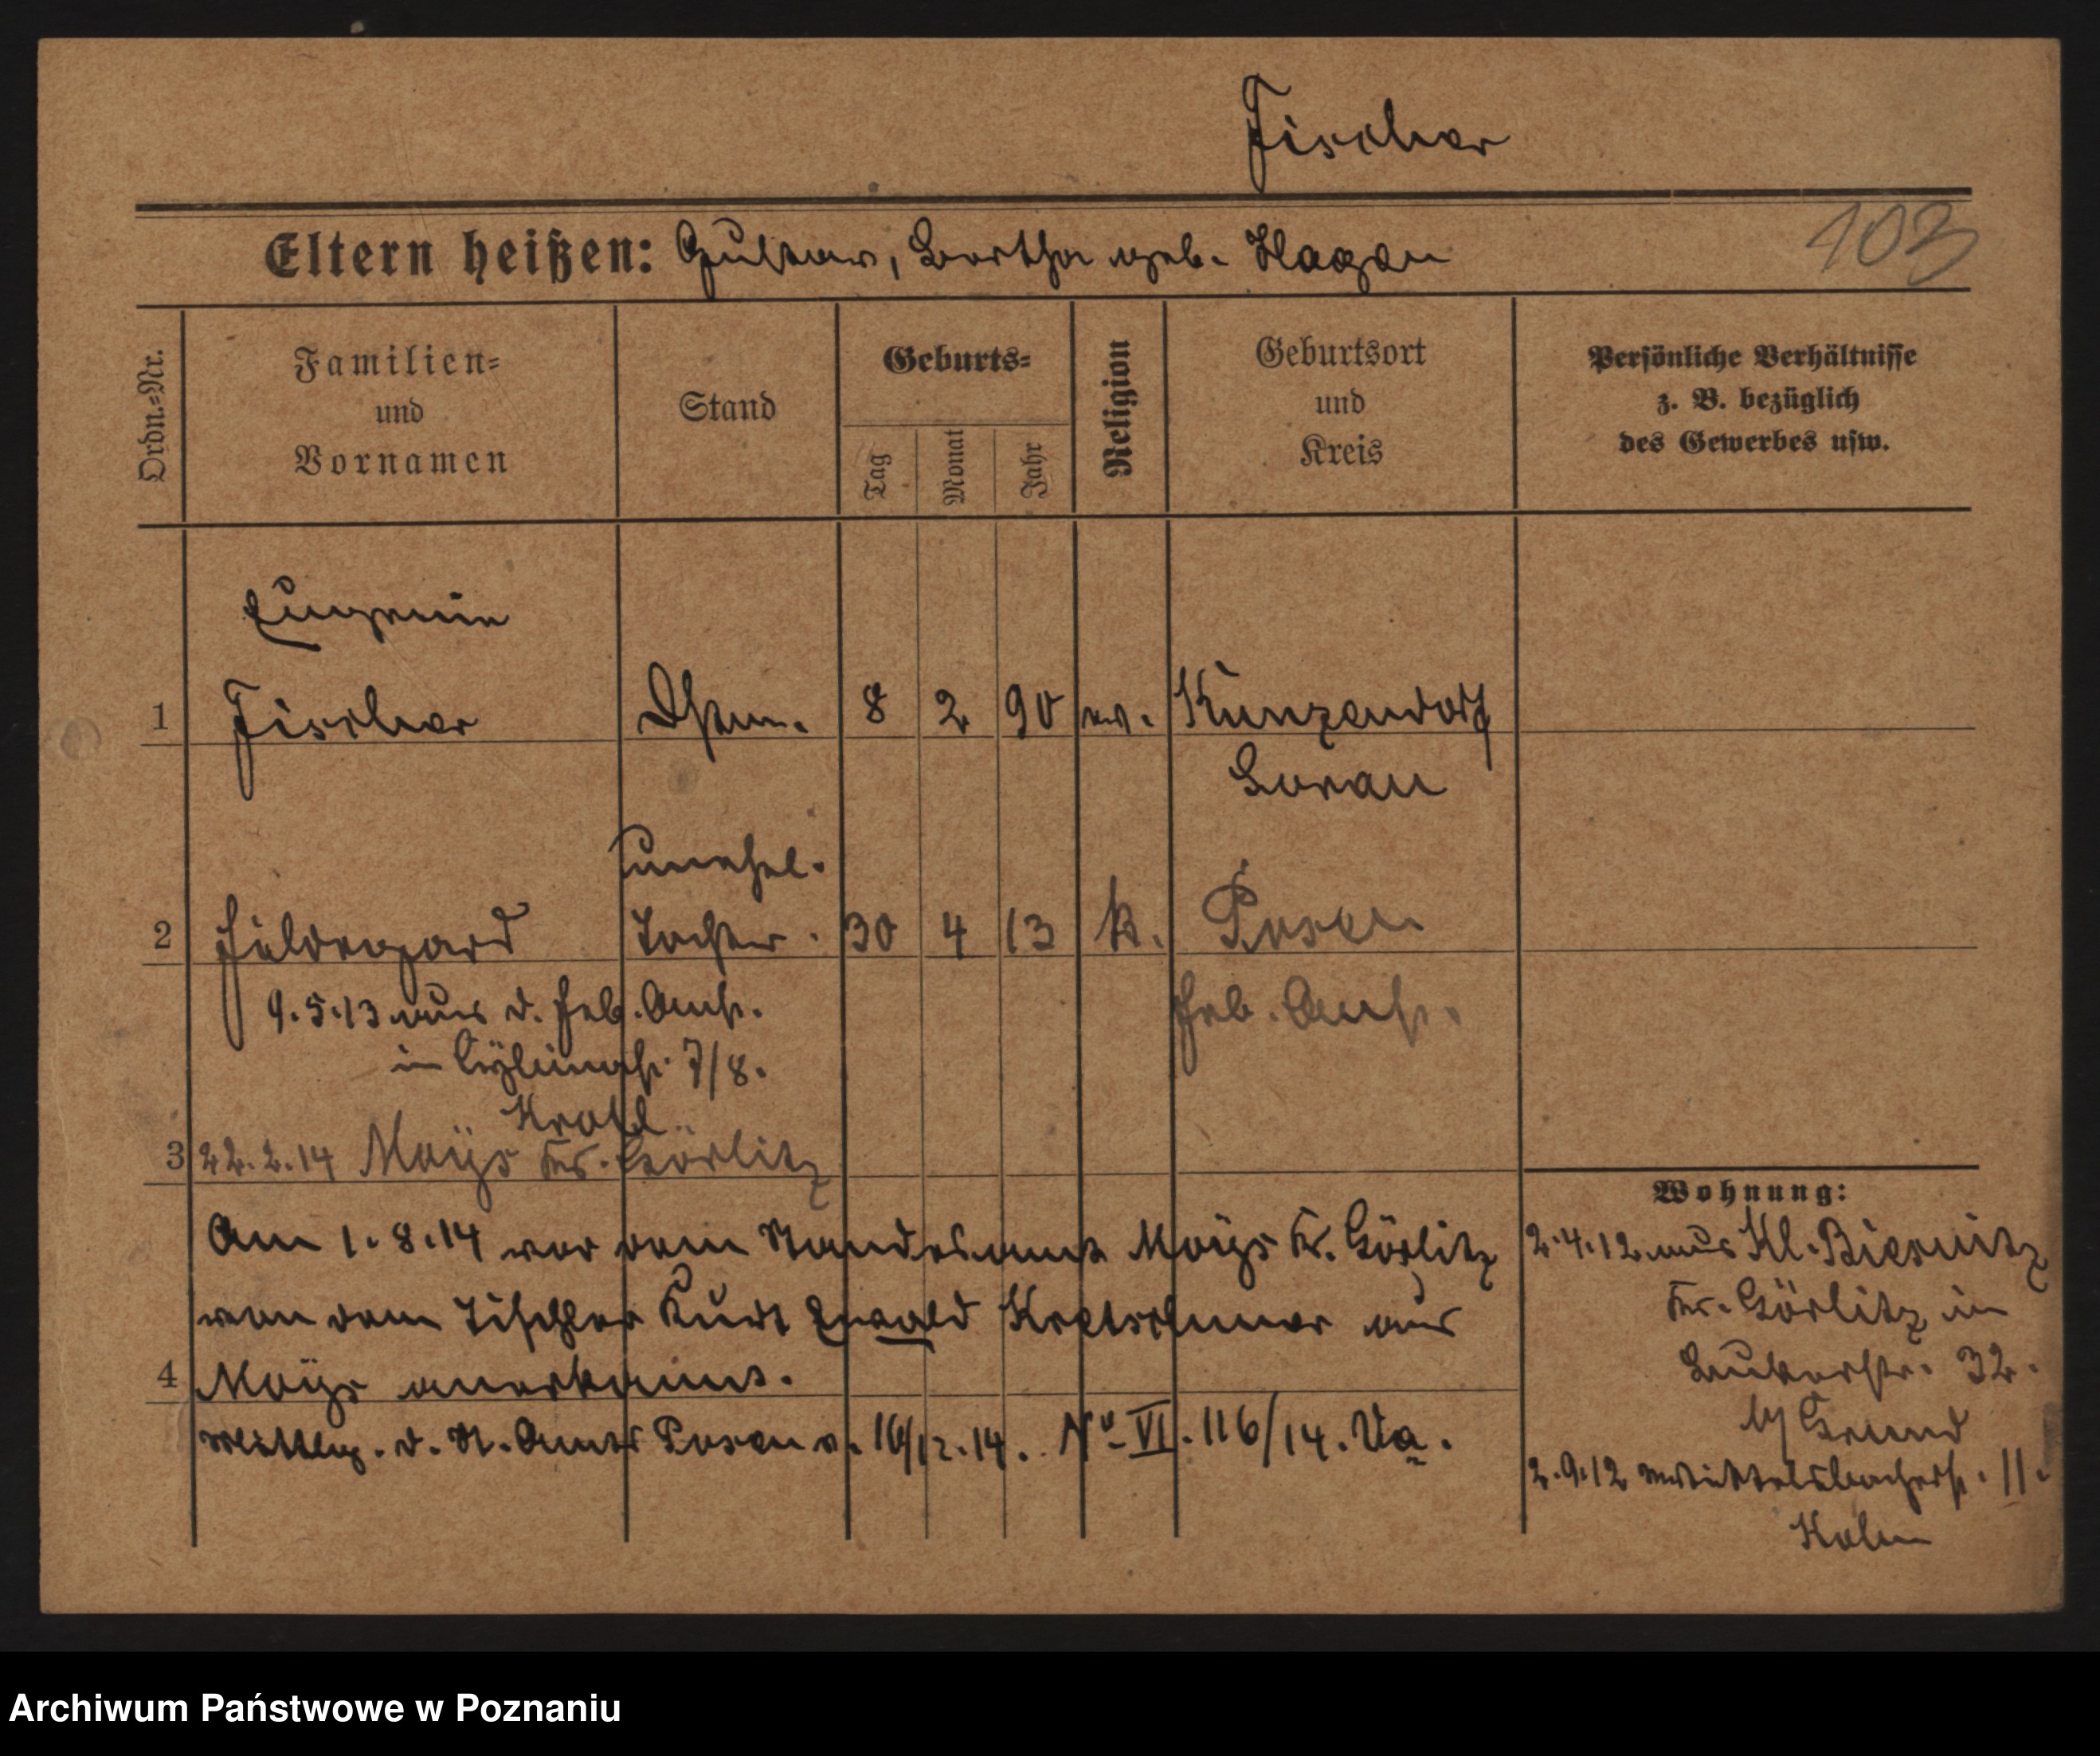 Fischer
Eltern heißen: Gustav, Bertha geb. Hagen
103
Ordn.=Nr.
Familien=
und
Vornamen
Stand
Geburts=
Tag
Monat
Jahr
Religion
Geburtsort
und
Kreis
Persönliche Verhältnisse
z. B. bezüglich
des Gewerbes usw.
Eugenie
1 Fischer 8 2 90 ev. Kunzendorf
Sorau
unehel.
2 Hildegard Tochter. 30 4 13 k. Posen
Heb. Anst.
9.5.13 aus d. Heb. Anst.
in 7/8.
3 22.2.14 Moÿs Kr. Görlitz
Am 1.8.14 vor dem Standesamt Moÿs Kr. Görlitz
von dem Tischler Kurt Ewald Kretschmer aus
4 Moÿs anerkannt.
Mittlg. d. St. Amts Posen v. 16/12.14. No VI. 116/14. Va.
Wohnung:
2.4.12 aus Kl. Biesnitz
Kr. Görlitz in
32.
b/ Grund
2.9.12 Wittelsbacherst. 11.